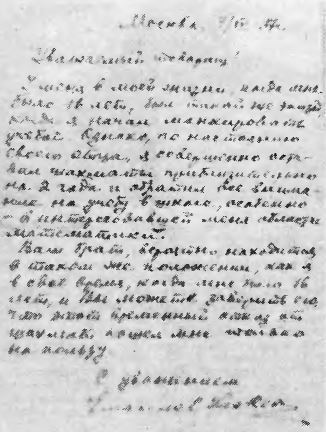 Москва,
Уважаемый товарищ!
У меня в моей жизни, когда мне
было 16 лет, был такой же
когда я начал манкировать
учебой. Однако, по настоянию
своего отца, я совершенно оста-
вил шахматы приблизительно
на 2 года и обратил все внима-
ние на учебу в школе, особенно
в интересовавшей меня области
математики.
Ваш брат, вероятно, находится
в таком же положении, как я
в свое время, когда мне было 16
лет, и Вы можете заверить его,
что этот временный отказ от
шахмат пошел мне только
на пользу
С уважением